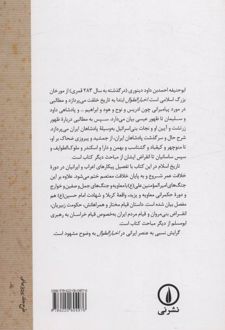 ابوحنیفه احمدبن داود دینوری (درگذشته به سال ۲۸۳ قمری) از مورخان
بزرگ اسلامی است اخبارالطوال ابتدا به تاریخ خلقت می‌پردازد و مطالبی
در مورد پیامبرانی چون ادریس و نوح و هود و ابراهیم ... و پادشاهی داود
و سلیمان تا ظهور عیسی بیان می‌دارد. سپس به مطالبی دربارهٔ ظهور
زرتشت و آیین او و نجات بنی‌اسرائیل به‌وسیلهٔ پادشاهان ایران می‌پردازد.
شرح حال و سرگذشت پادشاهان ایران، از جمشید و پیروزی ضحاک بر او
تا منوچهر و کیقباد و گشتاسب و بهمن و دارا و اسکندر و ملوک‌الطوایف و
سپس ساسانیان تا انقراض ایشان از مباحث دیگر کتاب است.
تاریخ اسلام در این کتاب با تفصیل پیکارهای اعراب و ایرانیان در دورهٔ
خلافت عمر شروع و به پایان خلافت معتصم ختم می‌شود. علاوه بر این
جنگ‌های امیرالمؤمنین علی(ع) با معاویه و جنگ‌های جمل و صفین و خوارج
و دورهٔ حکمرانی معاویه و یزید، واقعهٔ کربلا و شهادت امام حسین(ع) هم
مفصل بیان شده است. داستان قیام مختار و همراهانش، حکومت زبیریان،
انقراض بنی‌مروان و قیام مردم ایران به‌خصوص قیام خراسان به رهبری
ابومسلم از دیگر مباحث کتاب است.
گرایش نسبی به عنصر ایرانی در اخبارالطوال به وضوح مشهود است.
نشرنی